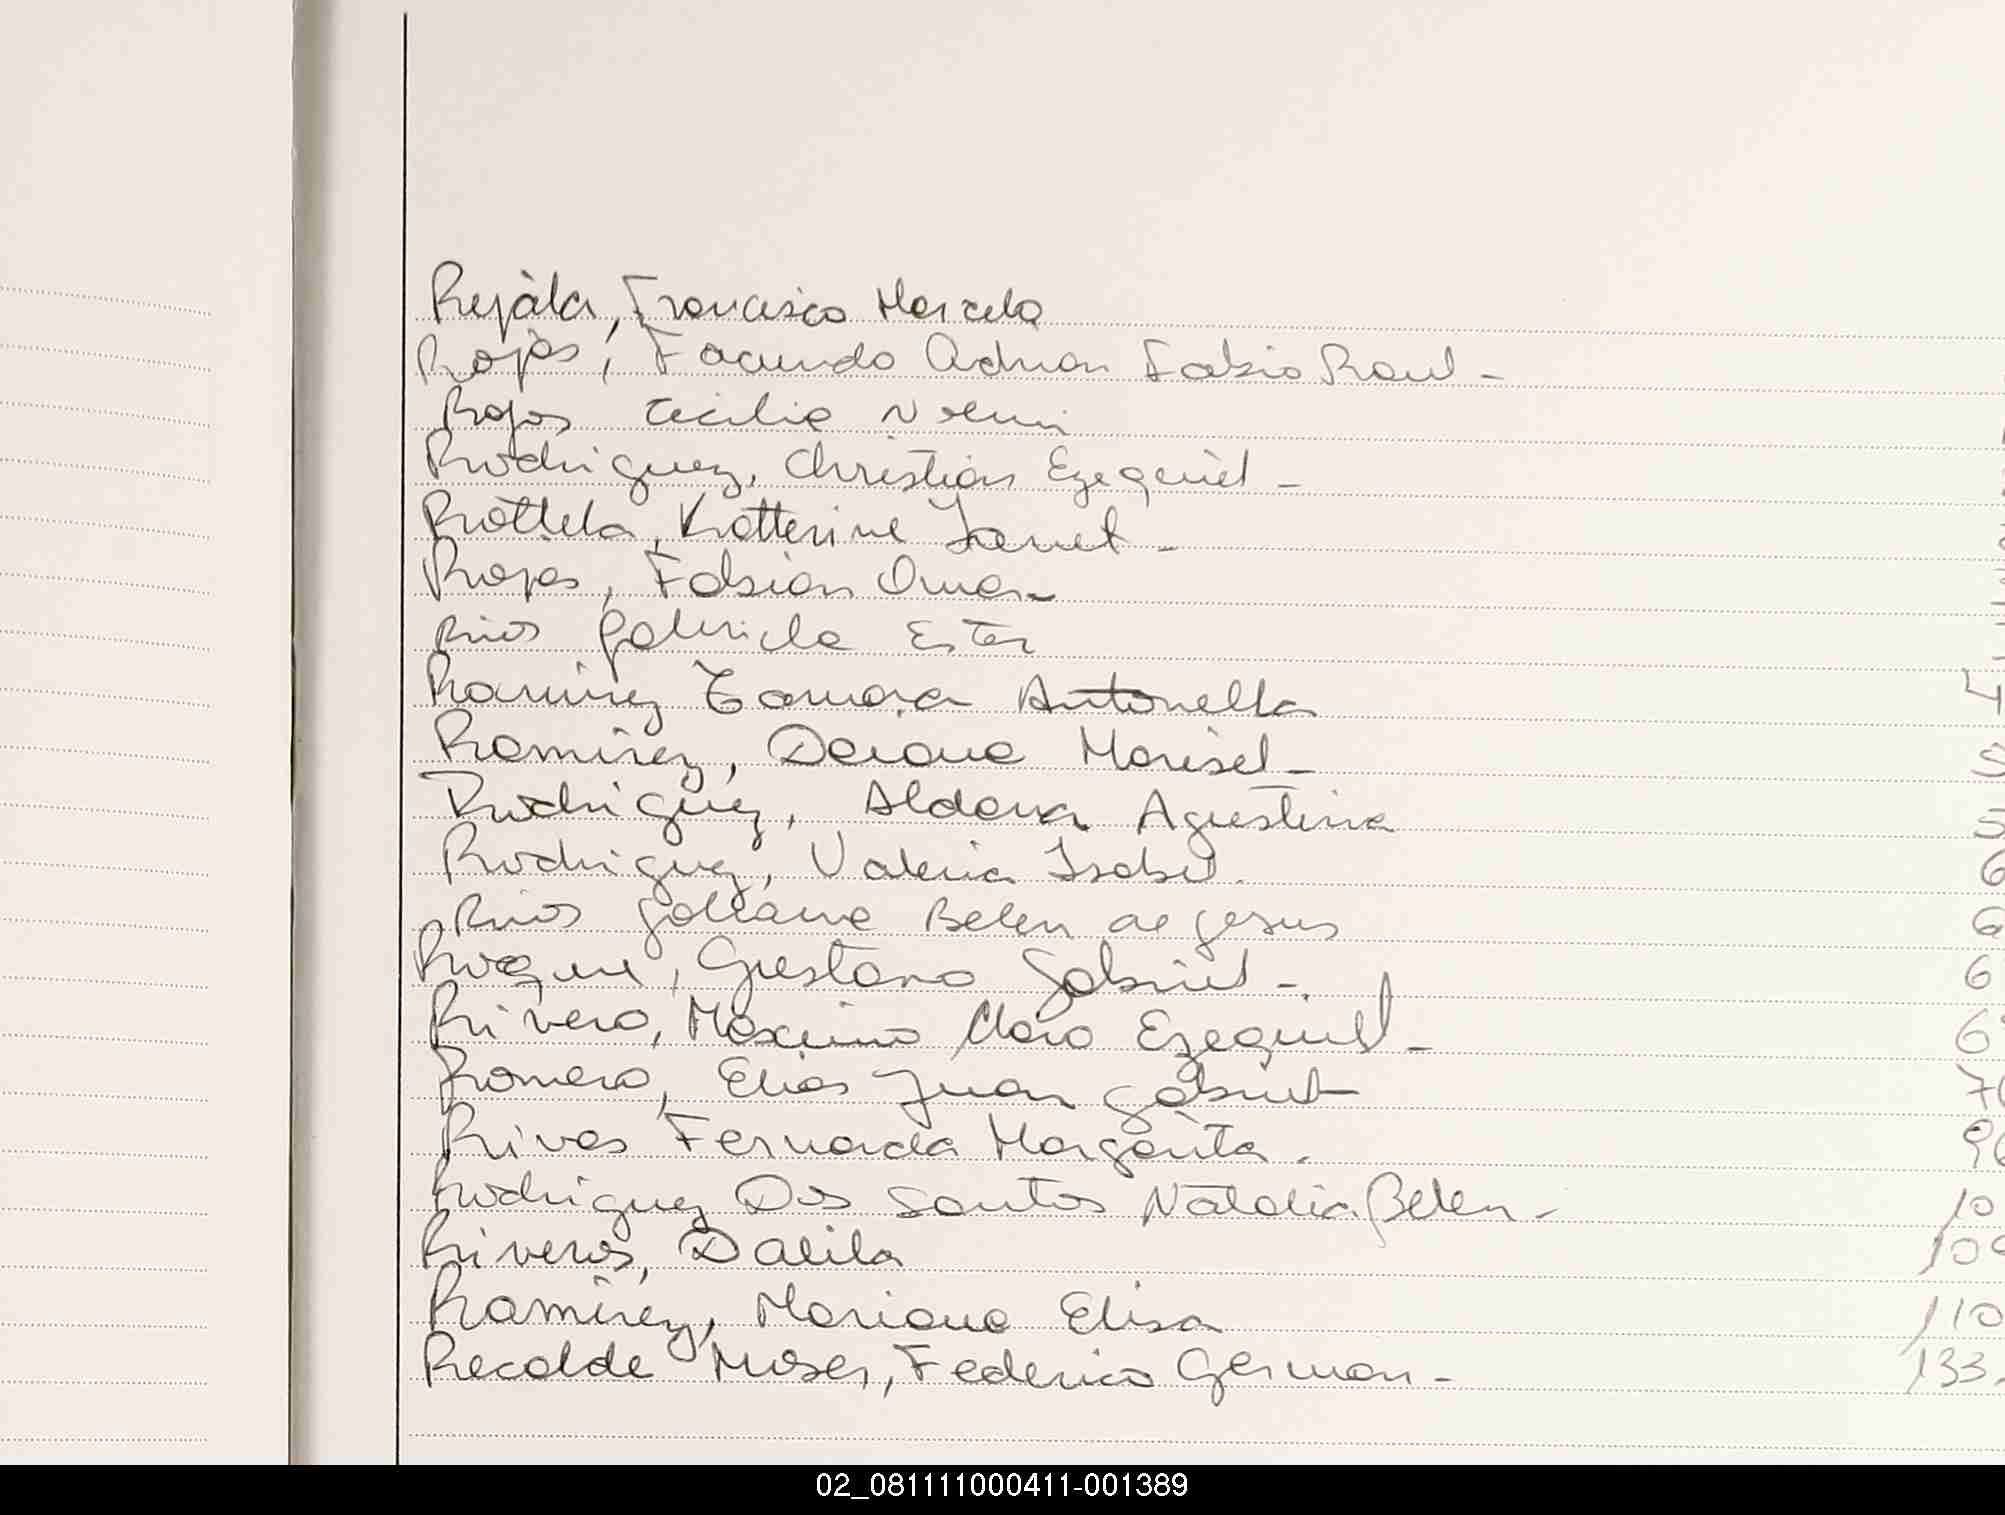 Rejála, Francisco Marcelo
Rojas, Facundo Adrian Fabio Raul -
Rojas Cecilia Noemi
Rodriguez, Christian Ezequiel -
Rottela, Katterine Janet -
Rojas, Fabian Omar -
Rios Gabriela Ester
Ramirez Tamara Antonella 4
Ramirez, Daiana Marisel - 5
Rodriguez, Aldana Agustina 5
Rodriguez, Valeria Isabel. 6
Rios Belen de Jesus 6
Roque, Gustavo Gabriel - 6
Rivero, Maximo Claro Ezequiel - 6
Romero, Elias Juan Gabriel 7
Rivas Fernanda Margarita. 9
Rodriguez Dos Santos Natalia Belen - 10
Riveros, Dalila 10
Ramirez, Mariana Elisa 110
Recalde Moser, Federico German - 133
02_081111000411-001389